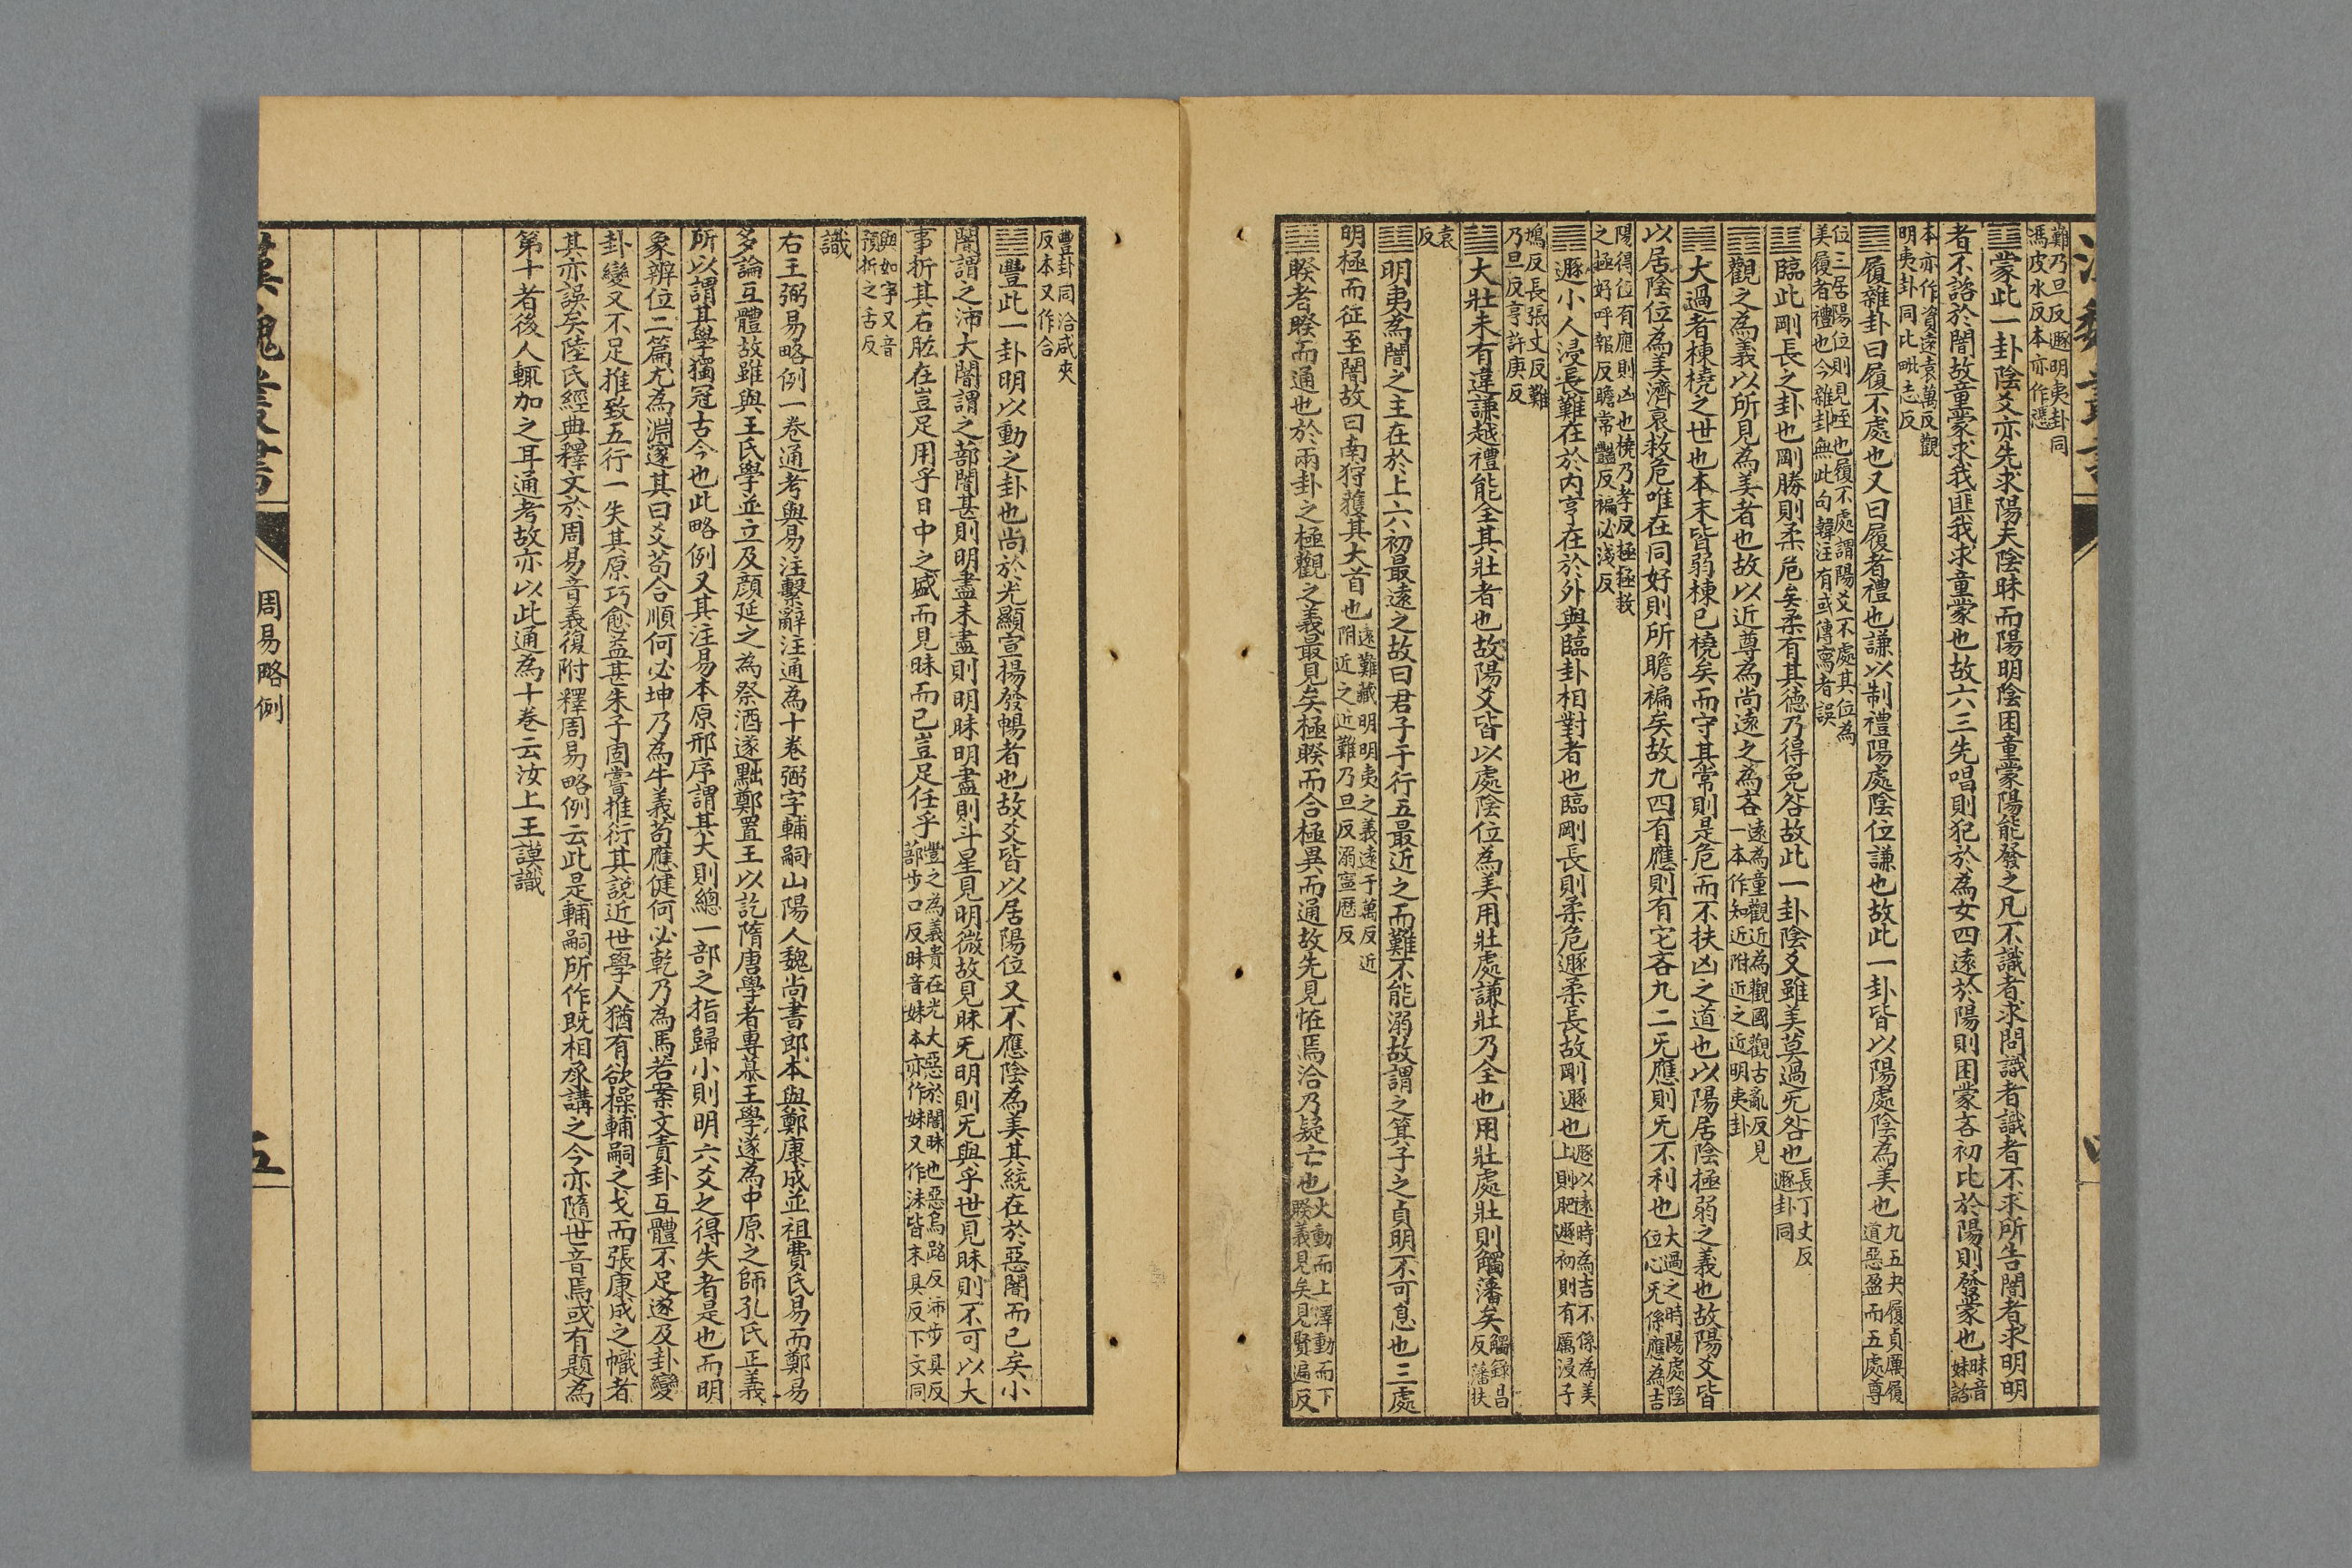 難乃旦反遯明夷卦同
馮皮氷反本亦作憑
䷃蒙此一卦陰爻亦先求陽夫陰昧而陽明陰困童蒙陽能發之凡不識者求問識者識者不求所告闇者求明明
者不諮於闇故童蒙求我匪我求童蒙也故六三先唱則犯於為女四遠於陽則困蒙吝初比於陽則發蒙也昧音妹諮
本亦作資遠袁萬反觀
明夷卦同比毗志反
䷉履雜卦曰履不處也又曰履者禮也謙以制禮陽處陰位謙也故此一卦皆以陽處陰為美也九五夬履貞厲履道惡盈而五處尊
位三居陽位則見咥也履不處謂陽爻不處其位為
美履者禮也今雜卦無此句韓注有或傳寫者誤
䷒臨此剛長之卦也剛勝則柔危矣柔有其德乃得免咎故此一卦陰爻雖美莫過旡咎也長丁丈反遯卦同
䷓觀之為義以所見為美者也故以近尊為尚遠之為吝遠為童觀近為觀國觀古亂反見一本作知近附近之近明夷卦
䷛大過者棟橈之世也本末皆弱棟已橈矣而守其常則是危而不扶凶之道也以陽居陰極弱之義也故陽爻皆
以居陰位為美濟衰救危唯在同好則所贍褊矣故九四有應則有它吝九二旡應則旡不利也大過之時陽處陰位心旡係應為吉
陽得位有應則凶也橈乃孝反極極拯救
之極好呼報反贍常豔反褊必淺反
䷠遯小人浸長難在於內亨在於外與臨卦相對者也臨剛長則柔危遯柔長故剛遯也遯以遠時為吉不係為美上則肥遯初則有厲浸子
鴆反長張丈反難
乃旦反亨許庚反
䷡大壯未有違謙越禮能全其壯者也故陽爻皆以處陰位為美用壯處謙壯乃全也用壯處壯則觸藩矣觸錄昌反藩扶
袁
反
䷣明夷為闇之主在於上六初最遠之故曰君子于行五最近之而難不能溺故謂之箕子之貞明不可息也三處
明極而征至闇故曰南狩獲其大首也遠難藏明明夷之義遠于萬反近附近之近難乃旦反溺寍歷反
䷥睽者睽而通也於兩卦之極觀之義最見矣極睽而合極異而通故先見怪焉洽乃疑亡也火動而上澤動而下睽義見矣見賢遍反
豐卦同洽咸夾
反本又作合
䷶豐此一卦明以動之卦也尚於光顯宣揚發暢者也故爻皆以居陽位又不應陰為美其統在於惡闇而已矣小
闇謂之沛大闇謂之蔀闇甚則明盡未盡則明昧明盡則斗星見明微故見昧旡明則旡與乎世見昧則不可以大
事折其右肱在豈足用乎日中之盛而見昧而已豈足任乎豐之為義貴在光大惡於闇昧也惡烏路反沛步貝反蔀步口反昧音妹本亦作妹又作沬皆末貝反下文同
與如字又音
預折之舌反
識
右王弼易略例一卷通考與易注繫辭注通為十卷弼字輔嗣山陽人魏尚書郎本與鄭康成並祖費氏易而鄭易
多論互體故雖與王氏學並立及顏延之為祭酒遂黜鄭置王以訖隋唐學者專慕王學遂為中原之師孔氏正義
所以謂其學獨冠古今也此略例又其注易本原邢序謂其大則總一部之指歸小則明六爻之得失者是也而明
象辨位二篇尤為淵邃其曰爻苟合順何必坤乃為牛義苟應健何必乾乃為馬若案文責卦互體不足遂及卦變
卦變又不足推致五行一失其原巧愈益甚朱子固嘗推衍其說近世學人猶有欲操輔嗣之戈而張康成之幟者
其亦誤矣陸氏經典釋文於周易音義復附釋周易略例云此是輔嗣所作既相承講之今亦隨世音焉或有題為
第十者後人輒加之耳通考故亦以此通為十卷云汝上王謨識
漢魏叢書
周易略例
五